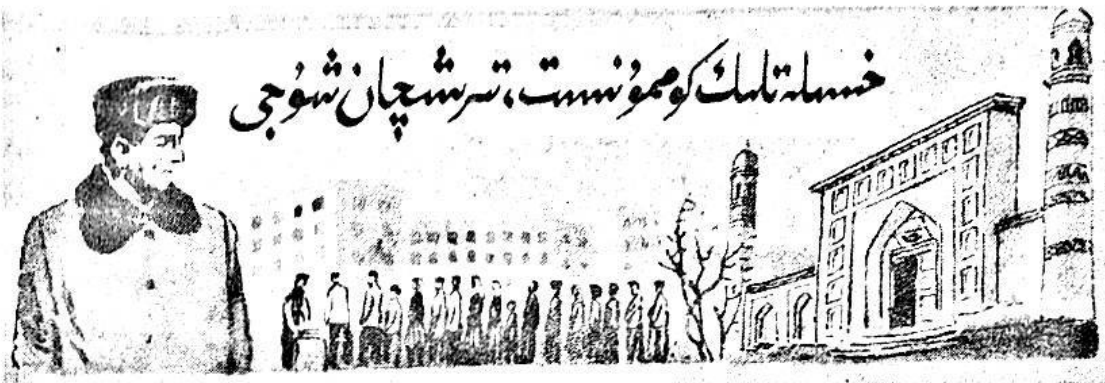 خىسلەتلىك كوممۇنىست، تىرىشچان شۇجى